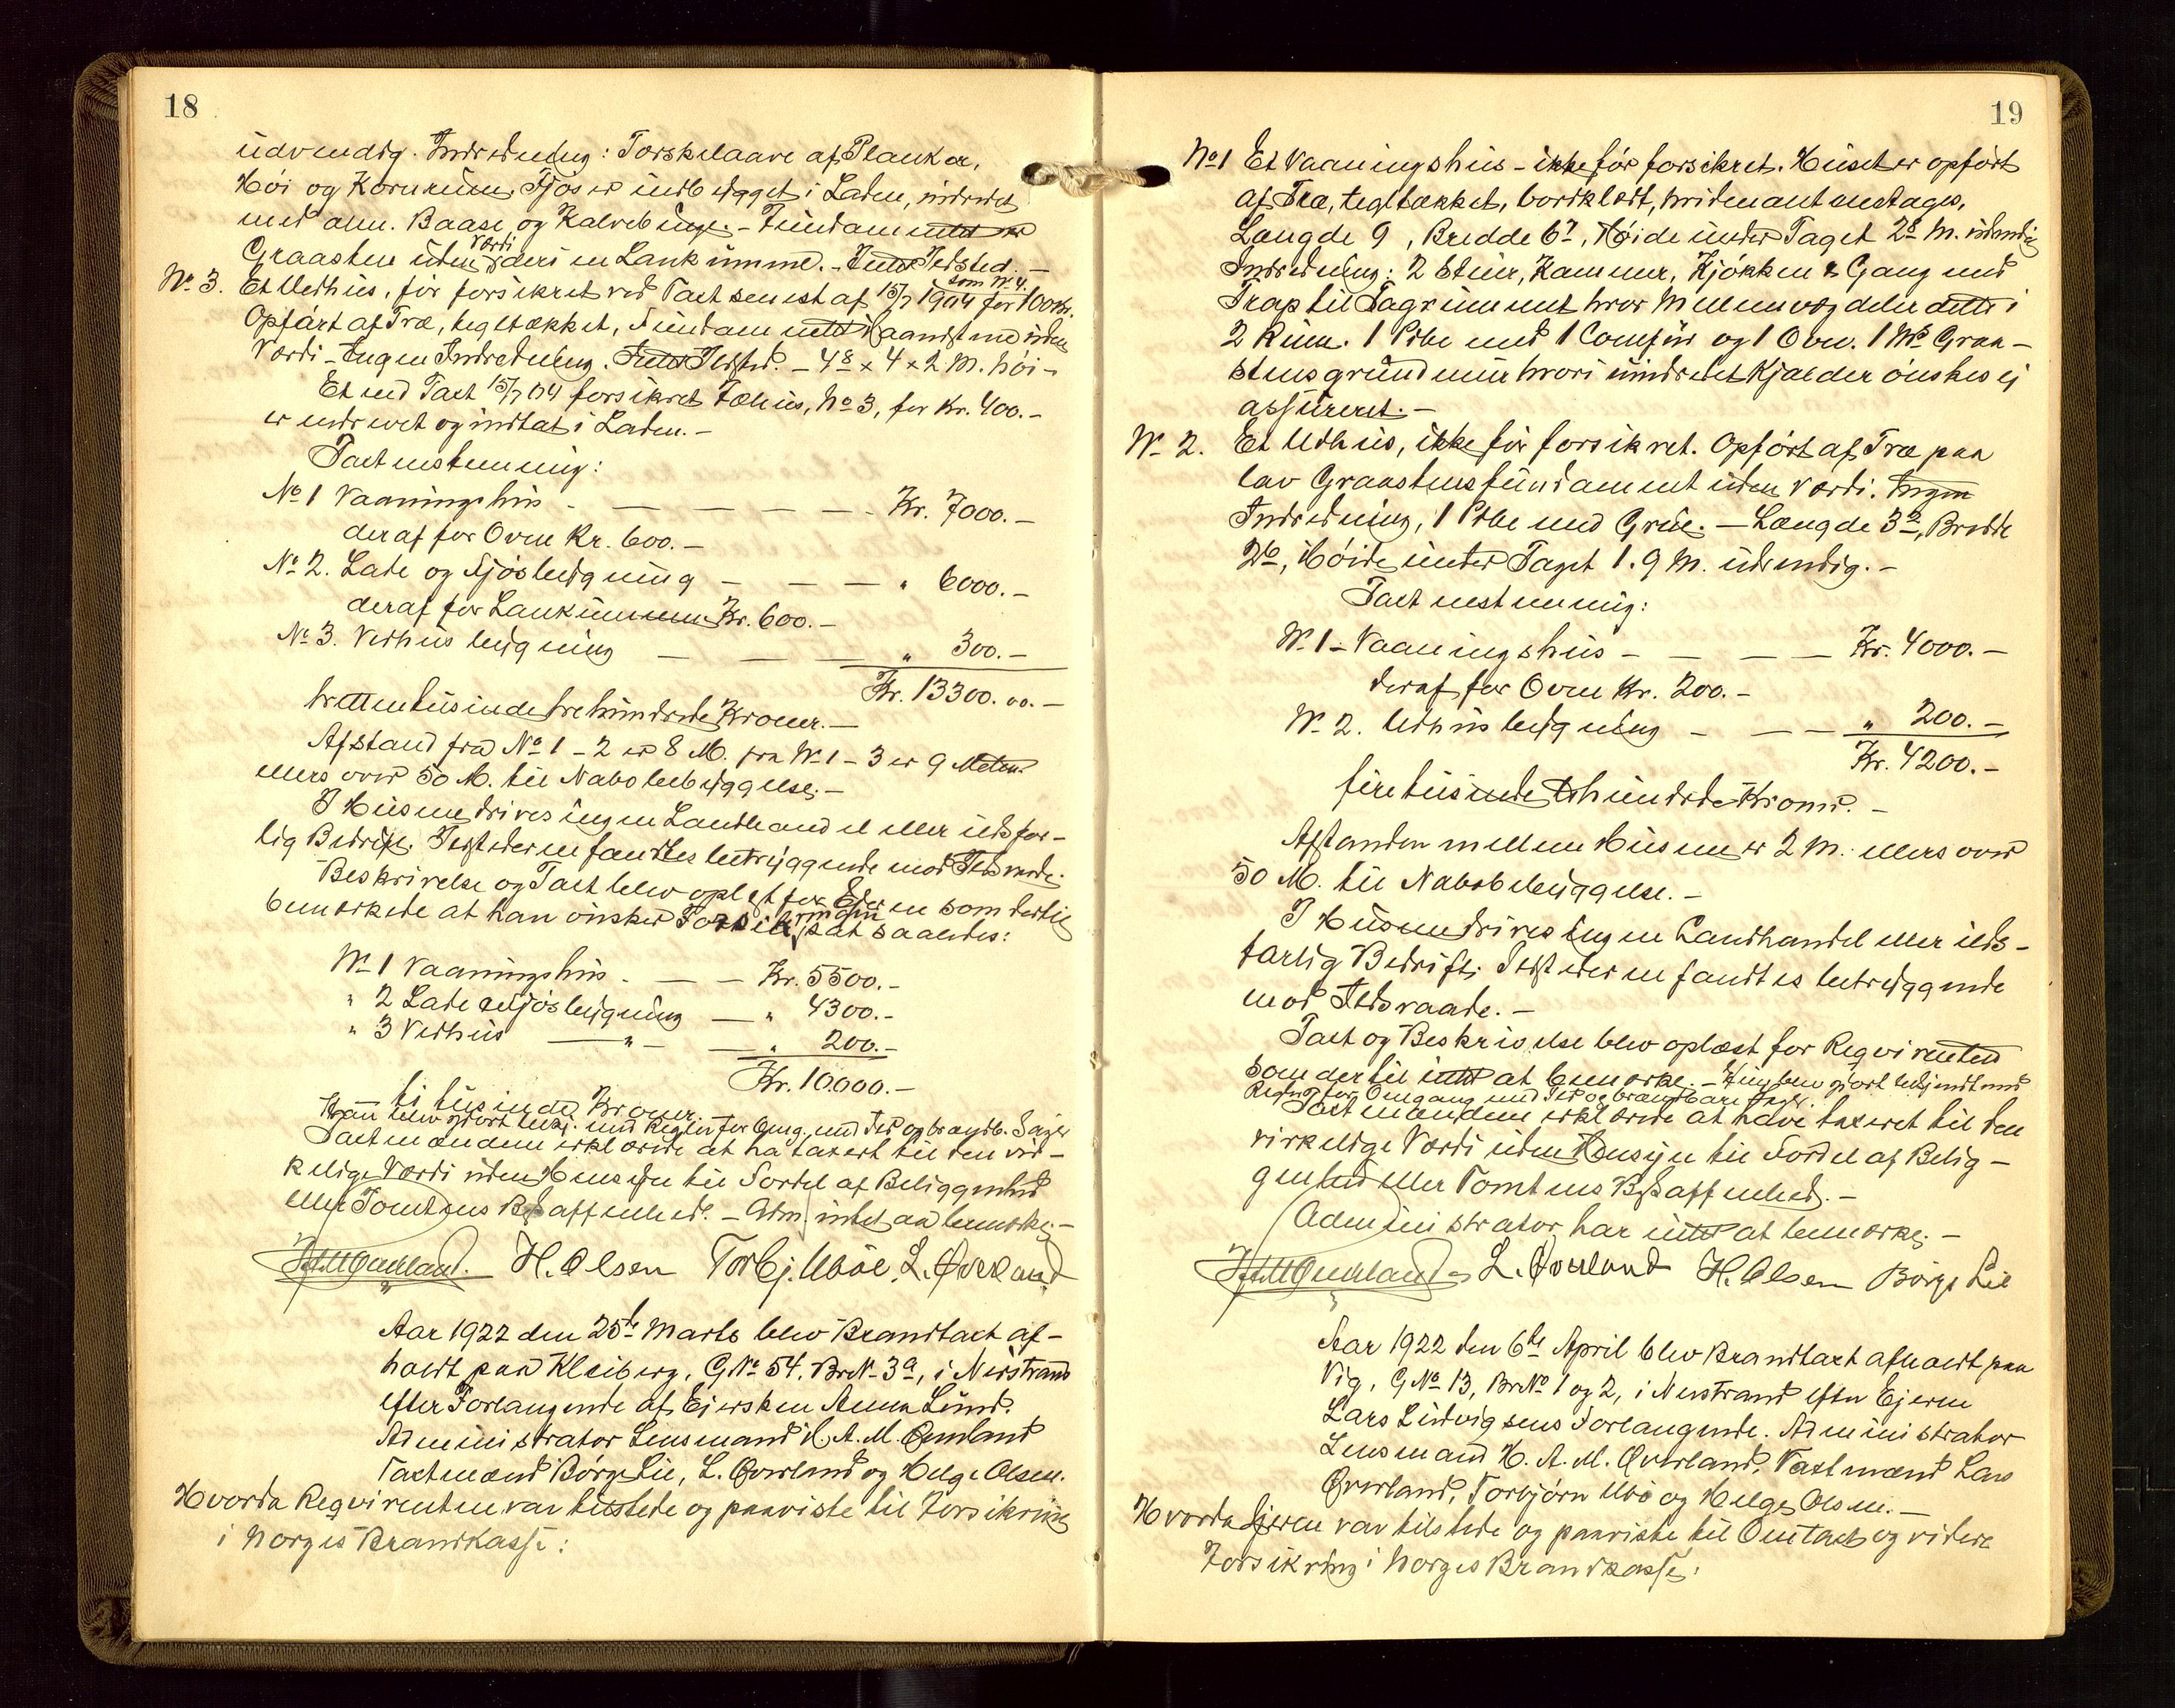 18
udvendig. Indredning: Torskelaave af Planker,
Høi og Kornrum. Fjøs er indbygget i Laden, indredet
med alm. Baase og Kalvebinge. - Fundament er
Graasten uden Værdi deri en Lankumme. - Intet Ildsted. -
No 3. Et Vedhus, før forsikret ved Taxt senest af 15/7 1904 som No 4. for 100 kr.
Opført af Træ, tegltækket, Fundament Haandsten uden
Værdi - Ingen Indredning. Intet Ildsted. - 4.8 x 4 x 2 M. høi -
Et ved Taxt 15/7 04 forsikret Fæhus, No 3, for Kr. 400. -
er nedrevet og indtat i Laden. -
Taxtnestemning:
No 1 Vaaningshus - — — — — - Kr. 7000. -
deraf for Ovne Kr. 600. -
No 2. Lade og Fjøsbygning — — — " 6000. -
deraf for Lankummen Kr. 600. -
No 3. Vedhusbygning — — — " 300. -
Kr. 13300.00. -
trettentusindetrehundrede Kroner. -
Afstand fra No 1 - 2 er 8 M. fra No 1 - 3 er 9 Meter
ellers over 50 M. til Nabobebyggelse. -
I Husene drives ingen Landhandel eller ildsfar-
lig Bedrift. Ildstederne fandtes betryggende mod Ildsvaade.
Beskrivelse og Taxt blev oplest for Eieren som dertil
bemerkede at han ønsker Forsikringen sat saaledes:
No 1 Vaaningshus - — — Kr. 5500. -
" 2 Lade og Fjøsbygning — " 4300. -
" 3 Vedhus — " — — " 200. -
Kr. 10.000. -
ti tusinde Kroner.
Han blev gjort bekj. med Regler for Omg. med Ild og brandb. Sager
Taxtmændene erklærede at ha taxert til den vir-
kelige Værdi uden Hensyn til Fordel af Beliggenhed
eller Tomtens Beskaffenhed. - Adm. intet at bemerke. -
H. A. M. Qverland. H. Olsen Torbj. Ubøe L. Qverland
Aar 1922 den 25de Marts blev Brandtaxt af-
holdt paa Kleiberg, GNo 54, BrN. 3a, i Nerstrand
efter Forlangende af Eiersken Anna Lund.
Administrator Lensmand H. A. M. Qverland
Taxtmænd Børge Lie, L. Qverland og Helge Olsen.
Hvorda Reqvirenten var tilstede og paaviste til Forsikring
i Norges Brandkasse:
19
No 1 Et Vaaningshus - ikke før forsikret. Huset er opført
af Træ, tegltækket, bordklædt, hvidmalt
Længde 9 , Bredde 6.7, Høide under Taget 2.8 M. udvendig
Indredning: 2 Stuer, Kammer, Kjøkken & Gang med
Trap til Tagrummet hvor Mellemvæg deler dette i
2 Rum. 1 Pibe med 1 Comfur og 1 Ovn. 1 M. Graa-
stensgrundmur hvori uindredet Kjælder ønskes ej
assureret. -
No 2. Et Udhus, ikke før forsikret. Opført af Træ paa
lav Graastensfundament uden Værdi. Ingen
Indredning, 1 Pibe med Grue. - Længde 3.2, Bredde
2.6, Høide under Taget 1.9 M. udvendig. -
Taxtnestemning:
No 1 - Vaaningshus - — — — Kr. 4000. -
deraf for Ovne Kr. 200. -
No 2. Udhusbygning - — — " 200. -
Kr. 4200. -
fire tusinde tohundrede Kroner. -
Afstanden mellem Husene er 2 M. ellers over
50 M. til Nabobebyggelse. -
I Husene drives ingen Landhandel eller ilds-
farlig Bedrift. Ildstederne fandtes betryggende
mod Ildsvaade. -
Taxt og Beskrivelse blev oplæst for Reqvirenten
som dertil intet at bemerke. - Hun blev gjort bekjendt med
Regler for Omgang med Ild og brandbare Sager.
Taxtmændene erklærede at have taxeret til den
virkelige Værdi uden Hensyn til Fordel af Belig-
genhed eller Tomtens Beskaffenhed. -
Administrator har intet at bemerke. -
H. A. M. Qverland L. Qverland H. Olsen Børge Lie
Aar 1922 den 6te April blev Brandtaxt afholdt paa
Vig, GNo 13, BrNo 1 og 2, i Nerstrand efter Ejeren
Lars Ludvigsens Forlangende. Administrator
Lensmand H. A. M. Qverland, Taxtmænd Lars
Qverland, Torbjørn Ubø og Helge Olsen. -
Hvorda Ejeren var tilstede og paaviste til Omtaxt og videre
Forsikring i Norges Brandkasse: